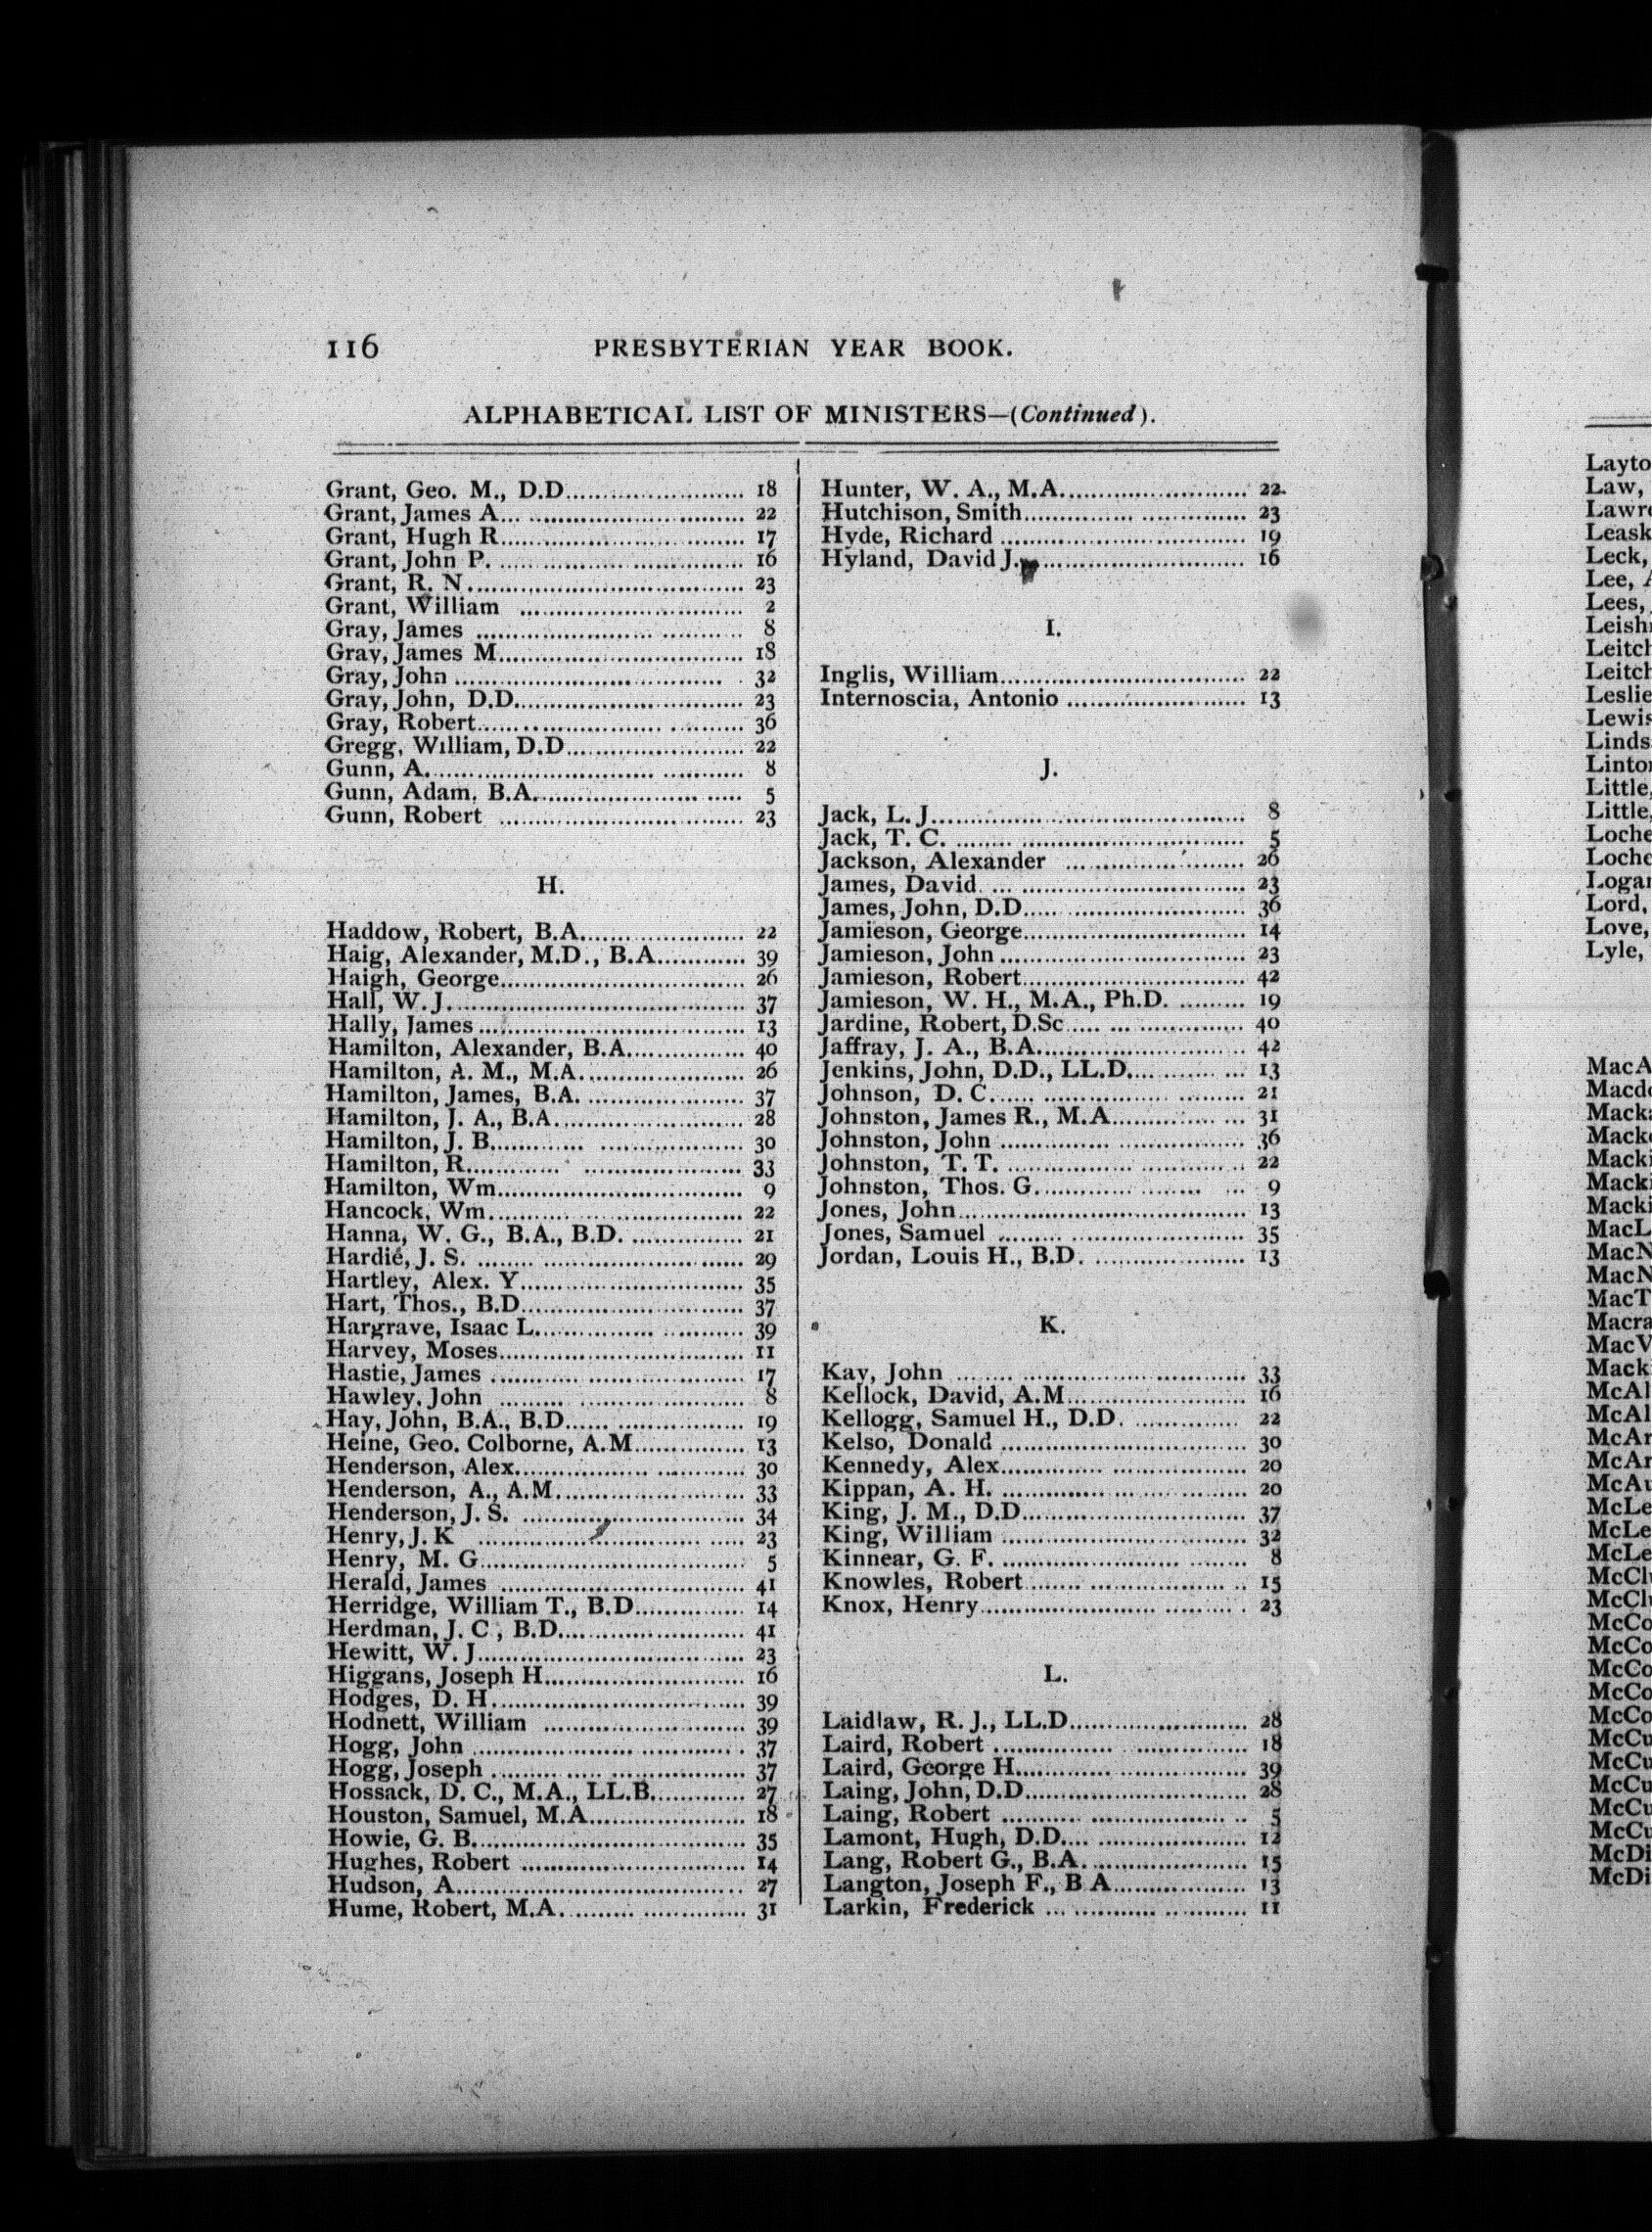 116 PRESBYTERIAN YEAR BOOK.
ALPHABETICAL LIST OF MINISTERS—(Continued).
Grant, Geo. M., D.D........................ 18
Grant, James A... ............................ 22
Grant, Hugh R................................. 17
Grant, John P. ................................. 16
Grant, R. N..................................... 23
Grant, William .............................. 2
Gray, James .................................... 8
Gray, James M................................. 18
Gray, John .................................... 32
Gray, John, D.D............................... 23
Gray, Robert.................................... 36
Gregg, William, D.D........................ 22
Gunn, A.......................................... 8
Gunn, Adam, B.A............................ 5
Gunn, Robert ................................. 23
H.
Haddow, Robert, B.A...................... 22
Haig, Alexander, M.D., B.A............ 39
Haigh, George................................. 26
Hall, W. J........................................ 37
Hally, James .................................... 13
Hamilton, Alexander, B.A................ 40
Hamilton, A. M., M.A...................... 26
Hamilton, James, B.A. ..................... 37
Hamilton, J. A., B.A.......................... 28
Hamilton, J. B.................................. 30
Hamilton, R..................................... 33
Hamilton, Wm................................. 9
Hancock, Wm.................................. 22
Hanna, W. G., B.A., B.D. ............... 21
Hardie, J. S. .................................... 29
Hartley, Alex. Y.............................. 35
Hart, Thos., B.D.............................. 37
Hargrave, Isaac L............................ 39
Harvey, Moses................................. 11
Hastie, James .................................. 17
Hawley, John .................................. 8
Hay, John, B.A., B.D....................... 19
Heine, Geo. Colborne, A.M............... 13
Henderson, Alex.............................. 30
Henderson, A., A.M......................... 33
Henderson, J. S. .............................. 34
Henry, J. K .................................... 23
Henry, M. G.................................... 5
Herald, James ................................. 41
Herridge, William T., B.D............... 14
Herdman, J. C , B.D......................... 41
Hewitt, W. J.................................... 23
Higgans, Joseph H........................... 16
Hodges, D. H.................................. 39
Hodnett, William ........................... 39
Hogg, John ..................................... 37
Hogg, Joseph .................................. 37
Hossack, D. C., M.A., LL.B............. 27
Houston, Samuel, M.A..................... 18
Howie, G. B.................................... 35
Hughes, Robert .............................. 14
Hudson, A....................................... 27
Hume, Robert, M.A......................... 31
Hunter, W. A., M.A......................... 22
Hutchison, Smith.............................. 23
Hyde, Richard ................................. 19
Hyland, David J............................... 16
I.
Inglis, William................................. 22
Internoscia, Antonio ........................ 13
J.
Jack, L. J......................................... 8
Jack, T. C. ...................................... 5
Jackson, Alexander ........................ 26
James, David ... .............................. 23
James, John, D.D............................. 36
Jamieson, George.............................. 14
Jamieson, John ................................. 23
Jamieson, Robert.............................. 42
Jamieson, W. H., M.A., Ph.D. ......... 19
Jardine, Robert, D.Sc....................... 40
Jaffray, J. A., B.A............................ 42
Jenkins, John, D.D., LL.D............... 13
Johnson, D. C.................................. 21
Johnston, James R., M.A................. 31
Johnston, John ................................ 36
Johnston, T. T. ................................ 22
Johnston, Thos. G............................ 9
Jones, John...................................... 13
Jones, Samuel ................................. 35
Jordan, Louis H., B.D. ..................... 13
K.
Kay, John ....................................... 33
Kellock, David, A.M........................ 16
Kellogg, Samuel H., D.D. .............. 22
Kelso, Donald ................................. 30
Kennedy, Alex................................. 20
Kippan, A. H. ................................. 20
King, J. M., D.D.............................. 37
King, William ................................. 32
Kinnear, G. F. ................................. 8
Knowles, Robert.............................. 15
Knox, Henry.................................... 23
L.
Laidlaw, R. J., LL.D........................ 28
Laird, Robert .................................. 18
Laird, George H............................... 39
Laing, John, D.D.............................. 28
Laing, Robert .................................. 5
Lamont, Hugh, D.D......................... 12
Lang, Robert G., B.A....................... 15
Langton, Joseph F., B A.................. 13
Larkin, Frederick ........................... 11
Layto
Law,
Lawre
Leask
Leck,
Lee, A
Lees,
Leish
Leitch
Leitch
Leslie
Lewis
Linds
Linto
Little,
Little,
Loche
Loche
Logan
Lord,
Love,
Lyle,
MacA
Macd
Mack
Mack
Macki
Macki
Macki
MacL
MacN
MacN
MacT
Macra
MacV
Mack
McAl
McAl
McAr
McAr
McAu
McLe
McLe
McLe
McCl
McCl
McCo
McCo
McCo
McCo
McCo
McCu
McCu
McCu
McCu
McCu
McDi
McDi